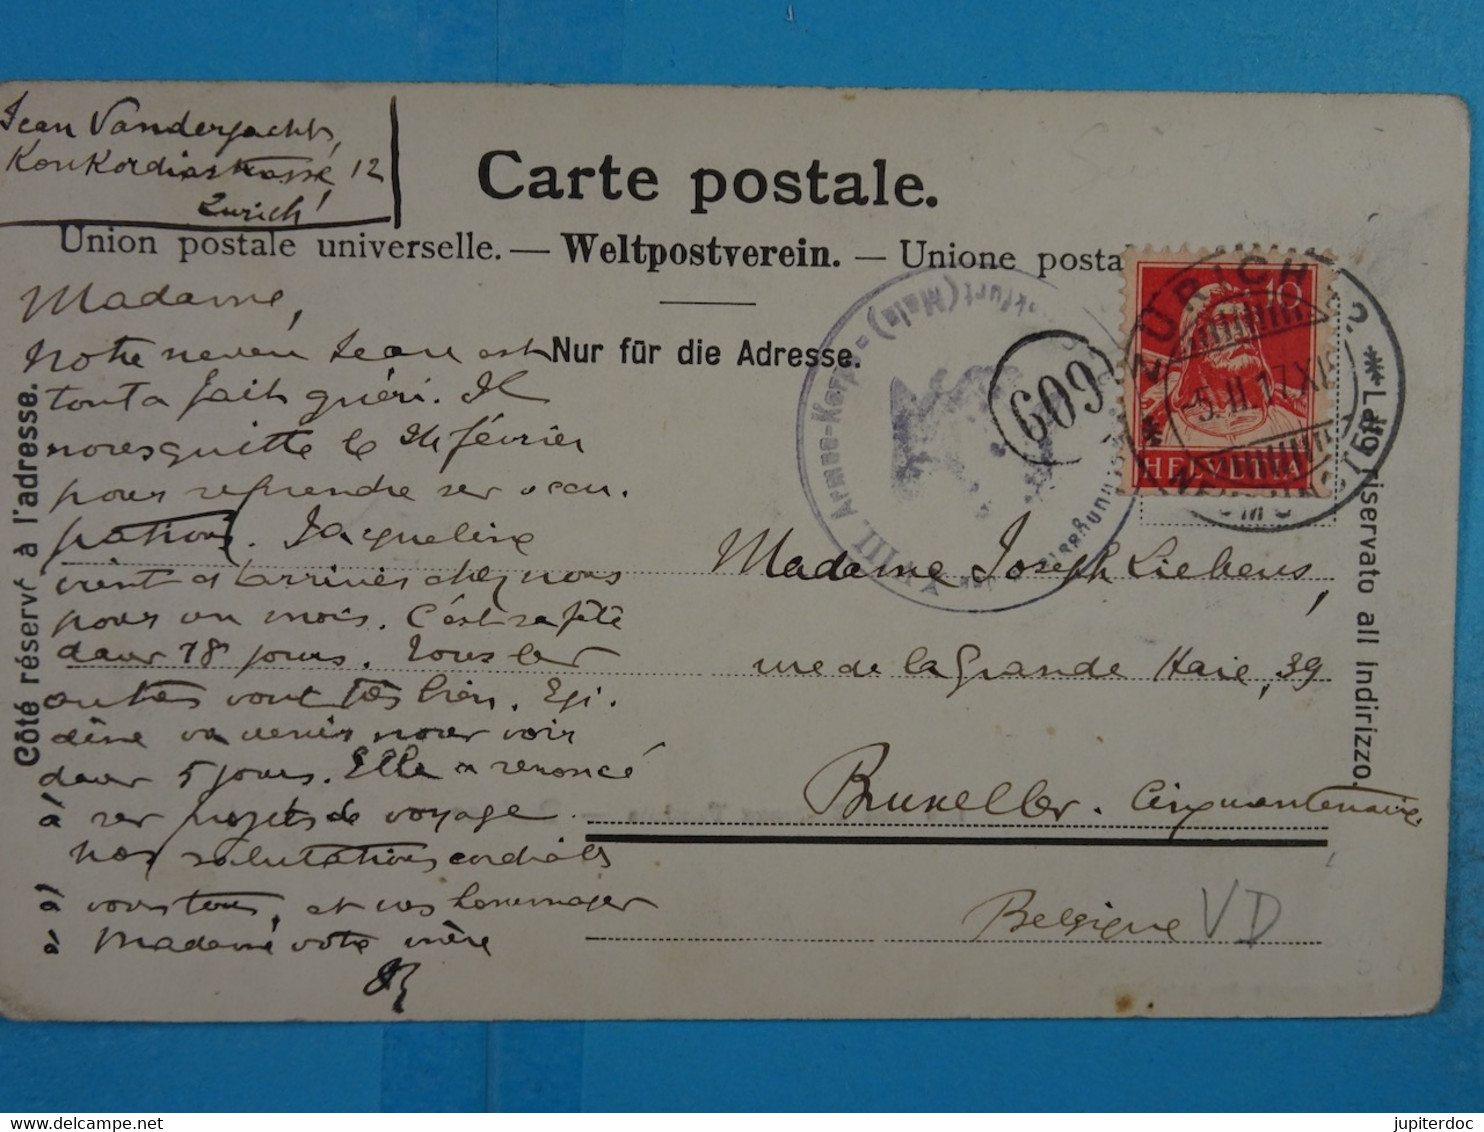 Jean Vanderjachts,
Konkordiastrasse 12
Zurich
Carte postale.
Union postale universelle. — Weltpostverein. — Unione posta
Nur für die Adresse.
Côté réservé à l'adresse.
riservato all indirizzo.
Madame,
Notre neveu Jean est
tout a fait guéri. Il
nous quitte le 24 février
pour reprendre ses occu-
pations. Jacqueline
vient d'arriver chez nous
pour un mois. C'est sa fête
dans 18 jours. Tous les
autres vont très bien. Egi-
dine va venir nous voir
dans 5 jours. Elle a renoncé
à ses projets de voyage
nos salutations cordiales
à vous tous, et nos hommages
à Madame votre mère
HELVETIA
10
ZÜRICH 12
-5.II.17.XI
NEUMÜNSTER
609
VIII. Armee-Korps - Frankfurt (Main)
Madame Joseph Liebens,
rue de la Grande Haie, 39
Bruxelles. Cinquantenaire
Belgique
VD
jupiterdoc